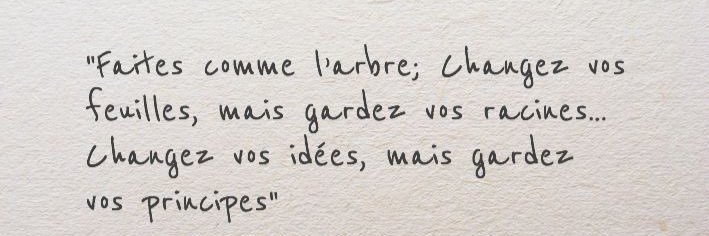 "Faites comme l'arbre; Changez vos
feuilles, mais gardez vos racines...
Changez vos idées, mais gardez
vos principes"